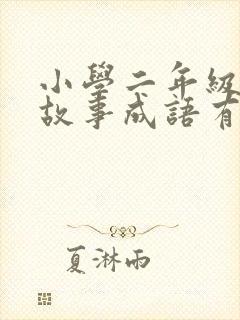 小學二年級
故事成語有
夏淋雨